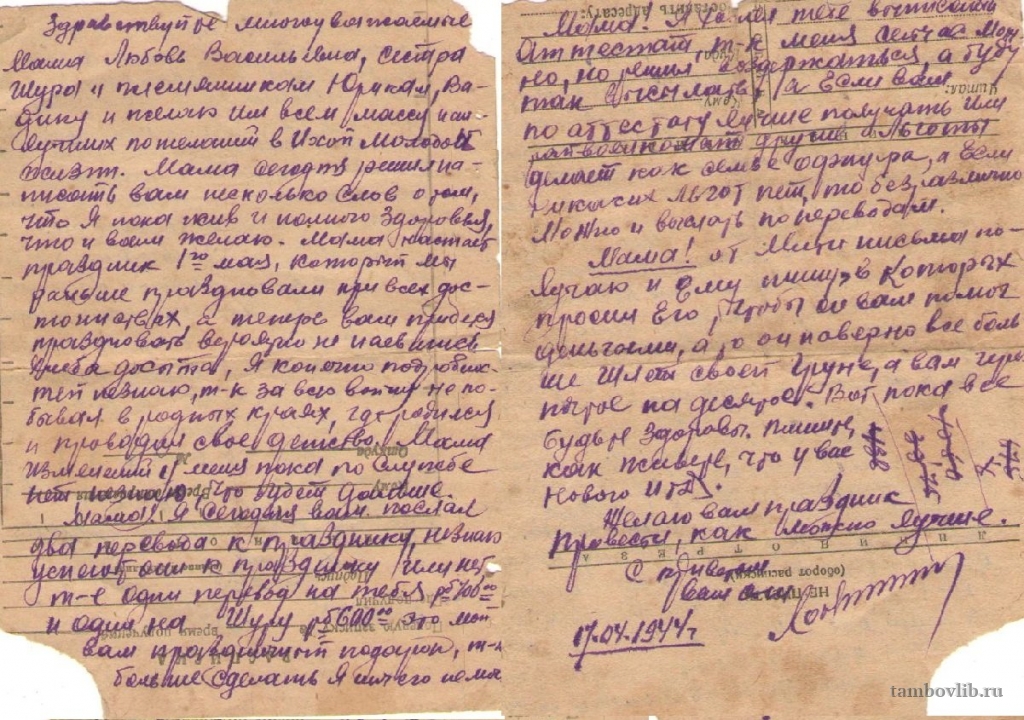 Здравствуйте многоуважаемые
Мама Любовь Васильевна, сестра
Шура и племянникам Юрикам, Ва-
дику и желаю им всем массу наи
лучших пожеланий в Ихой молодой
жизни. Мама сегодня решил на-
писать вам несколько слов о том,
что Я пока жив и полного здоровья,
что и вам желаю. Мама настает
праздник 1го мая, который мы
раньше праздновали при всех дос-
тоинствах, а теперь вам придеся
праздновать вероятно не наевшись
хлеба досыта, Я конечно подробнос-
тей незнаю, т-к за всю войну не по-
бывал в родных краях, где родился
и проводил свое детство. Мама
изменений у меня пока по службе
нет незнаю что будет дальше.
Мама! Я сегодня вам послал
два перевода к празднику, незнаю
успеют они к празднику или нет
т-е один перевод на тебя р 700 00
и один на Шуру рб 600 00 это мой
вам праздничный подарок, т-к
больше сделать Я ничего немо
Мама! Я хотел тебе выписать
Аттестат т-к меня сейчас мож
но, но решил воздержаться, а буду
так высылать, а Если вам
по аттестату лучше получать или
райвоенкомат лучше льготы
делает как семье офицера, а Если
никаких льгот нет, то безразлично
можно и выслать по переводам.
Мама! от Мити письма по-
лучаю и Ему пишу в которых
просил Его, чтобы он вам помог
деньгами, а то он наверно все боль
ше шлет своей Груне, а вам через
пятое на десятое. Вот пока все
будьте здоровы. пишите,
как живете, что у вас
нового и т.д.
Желаю вам праздник
провести, как можно лучше.
С приветом
ваш сын
17.04.1944 г
tambovlib.ru